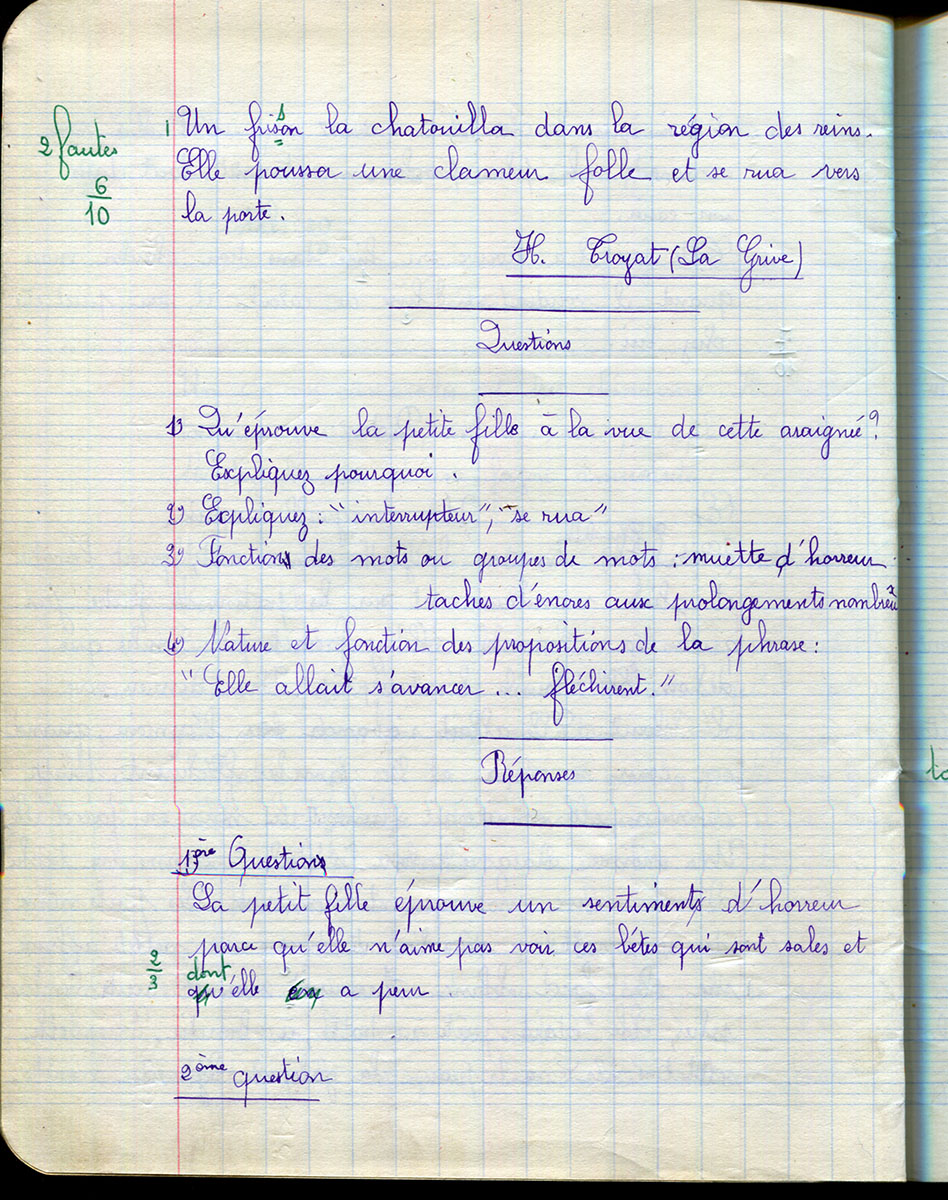 2 fautes
6/10
Un frison la chatouilla dans la région des reins.
s
Elle poussa une clameur folle et se rua vers
la porte.
H. Troyat (La Grive)
Questions
1) Qu'éprouve la petite fille à la vue de cette araignée?
Expliquez pourquoi.
2) Expliquez : "interrupteur", "se rua"
3) Fonctions des mots ou groupes de mots : muette d'horreur
taches d'encres aux prolongements nombreux
4) Nature et fonction des propositions de la phrase :
"Elle allait s'avancer ... fléchirent."
Réponses
1ère Question
La petit fille éprouve un sentiments d'horreur
parce qu'elle n'aime pas voir ces bêtes qui sont sales et
2/3
dont
qu'elle a peur.
2ème question